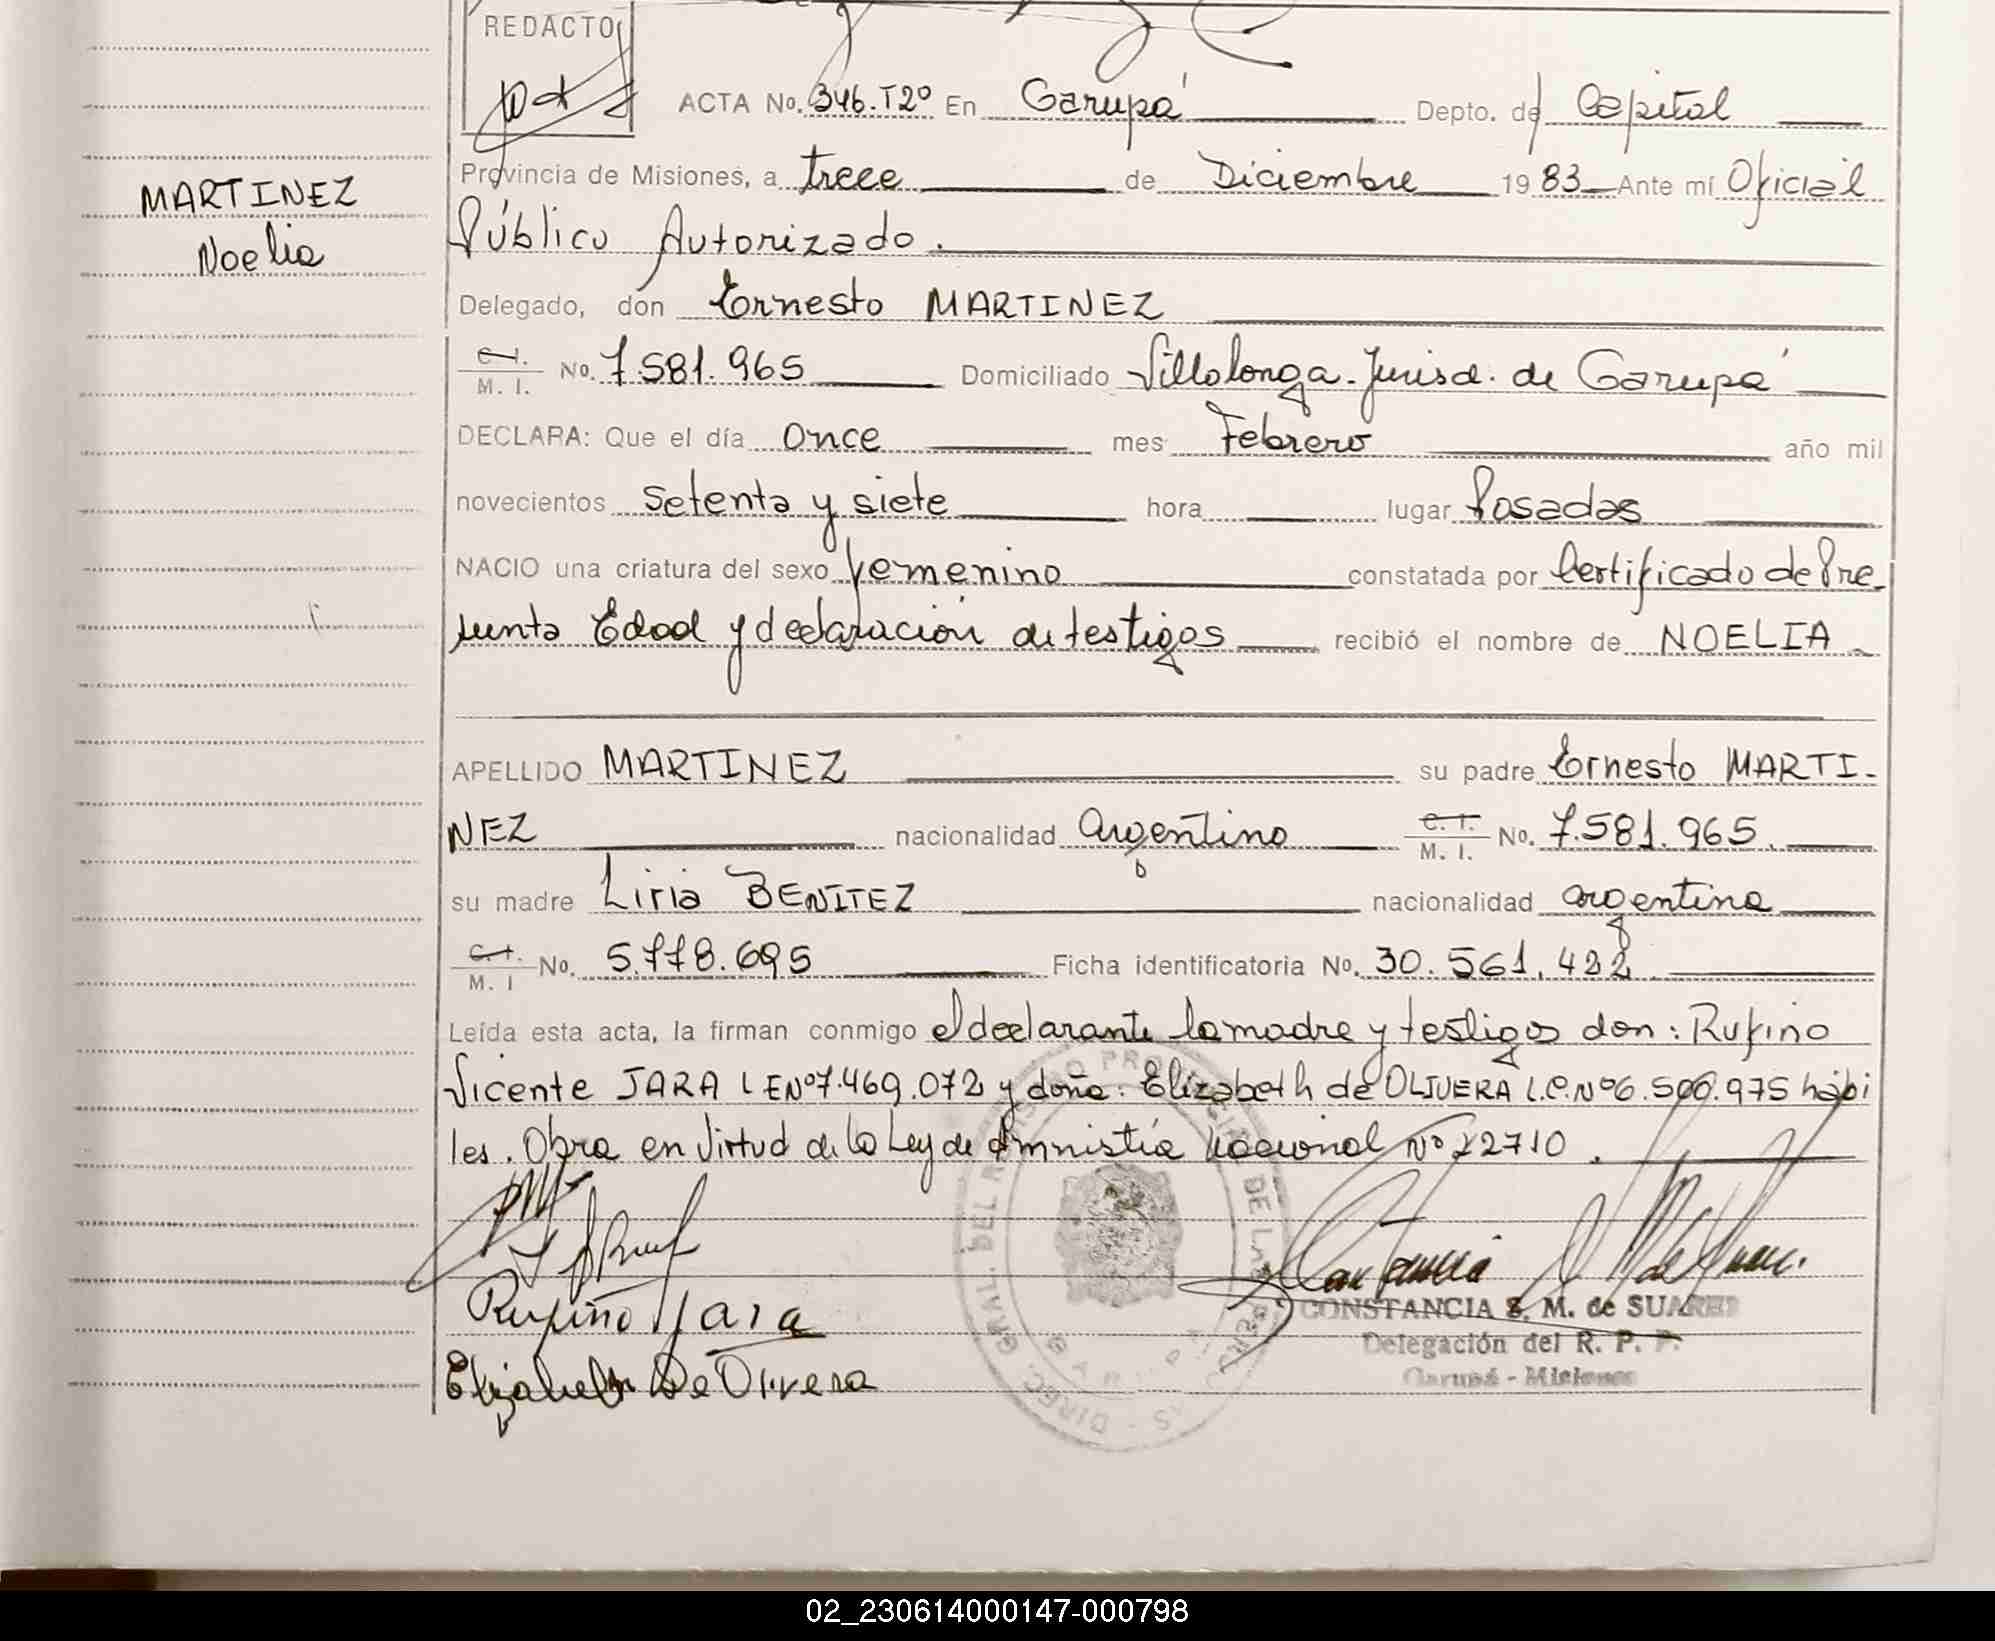 REDACTO
ACTA No. 346.T2º En Garupá Depto. de Capital
Provincia de Misiones, a trece de Diciembre 1983 Ante mí Oficial
MARTINEZ
Noelia
Público Autorizado.
Delegado, don Ernesto MARTINEZ
C. I.
M. I. No. 7.581.965 Domiciliado Villalonga-Jurisd. de Garupá
DECLARA: Que el día once mes Febrero año mil
novecientos setenta y siete hora lugar Posadas
NACIO una criatura del sexo femenino constatada por Certificado de Pre-
sunta Edad y declaración de testigos recibió el nombre de NOELIA
APELLIDO MARTINEZ su padre Ernesto MARTI-
NEZ nacionalidad argentino C. I. M. I. No. 7.581.965.
su madre Liria BENITEZ nacionalidad argentina
C. I.
M. I No. 5.778.695 Ficha identificatoria No. 30.561.422
Leída esta acta, la firman conmigo el declarante la madre y testigos don: Rufino
Vicente JARA L ENº7.469.072 y doña: Elizabeth de OLIVERA L.C.Nº6.500.975 hábi
les. Obra en virtud de la Ley de Amnistía Nacional Nº 22710.
Rufino Jara
CONSTANCIA S. M. de SUAREZ
Delegación del R. P. P.
Garupá - Misiones
Elizabeth De Olivera
DIREC. GRAL. DEL REGISTRO PROVINCIAL DE LAS PERSONAS
GARUPA
02_230614000147-000798